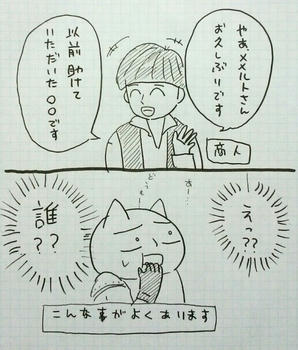 やあ、メメルトさん
お久しぶりです
以前助けて
いただいた〇〇です
商人
えっ??
あー…
どうも…
誰??
こんな事がよくあります